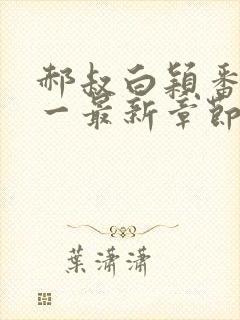 郝叔白穎番
一最新章節
葉瀟瀟